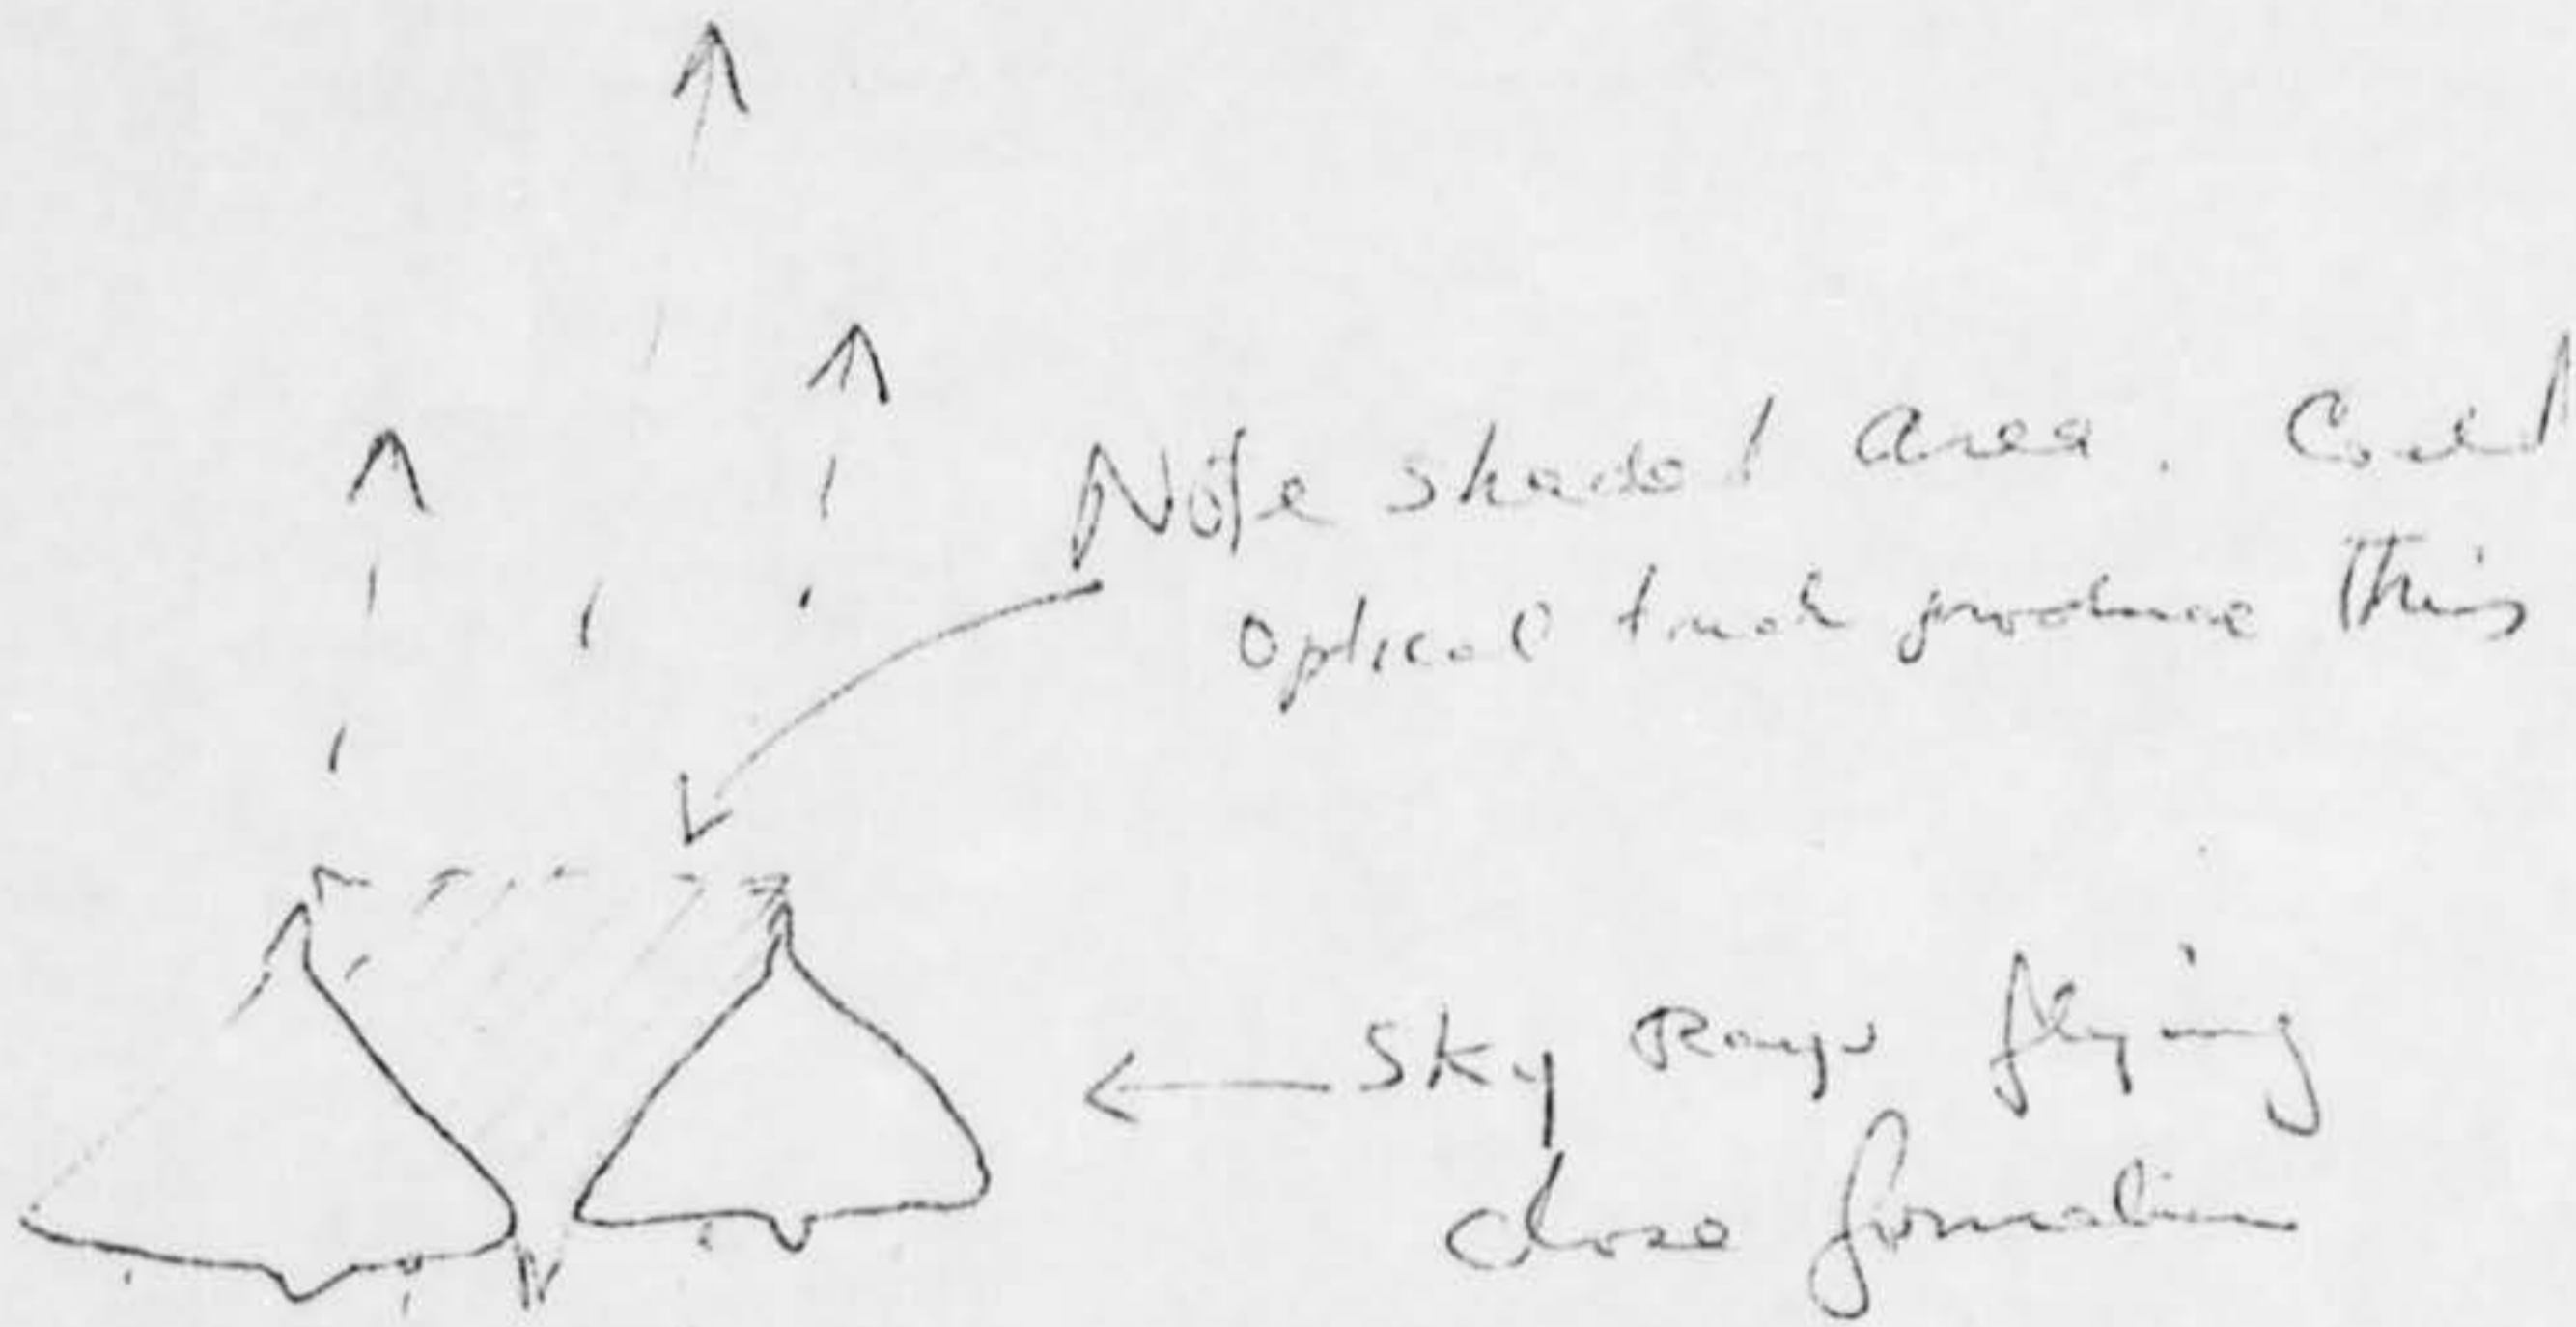 Note shaded area. Could
Optical trick produce this
Sky Rays flying
close formation